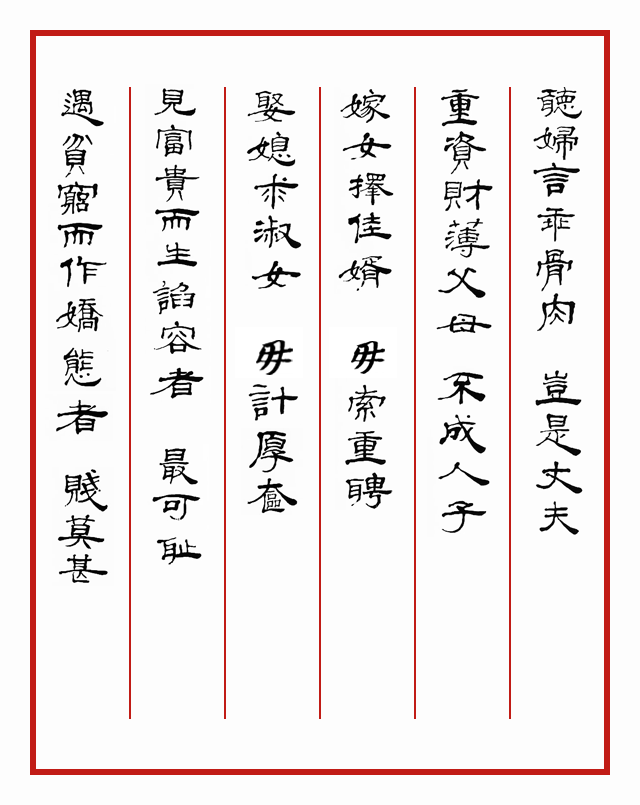 聽婦言乖骨肉 豈是丈夫
重資財薄父母 不成人子
嫁女擇佳婿 毋索重聘
娶媳求淑女 毋計厚奩
見富貴而生諂容者 最可恥
遇貧窮而作嬌態者 賤莫甚